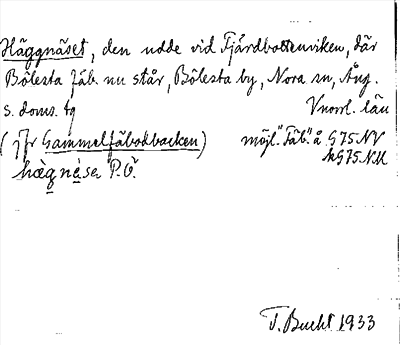 Häggnäset, den udde vid Fjärdbottenviken, där
Bölesta fäb. nu står, Bölesta by, Nora sn, Ång.
s. doms. tg Vnorrl. län
(jfr Gammelfäbodbacken) möjl. "Fäb." å G75NV
P.Ö. G75NU
T. Bucht 1933